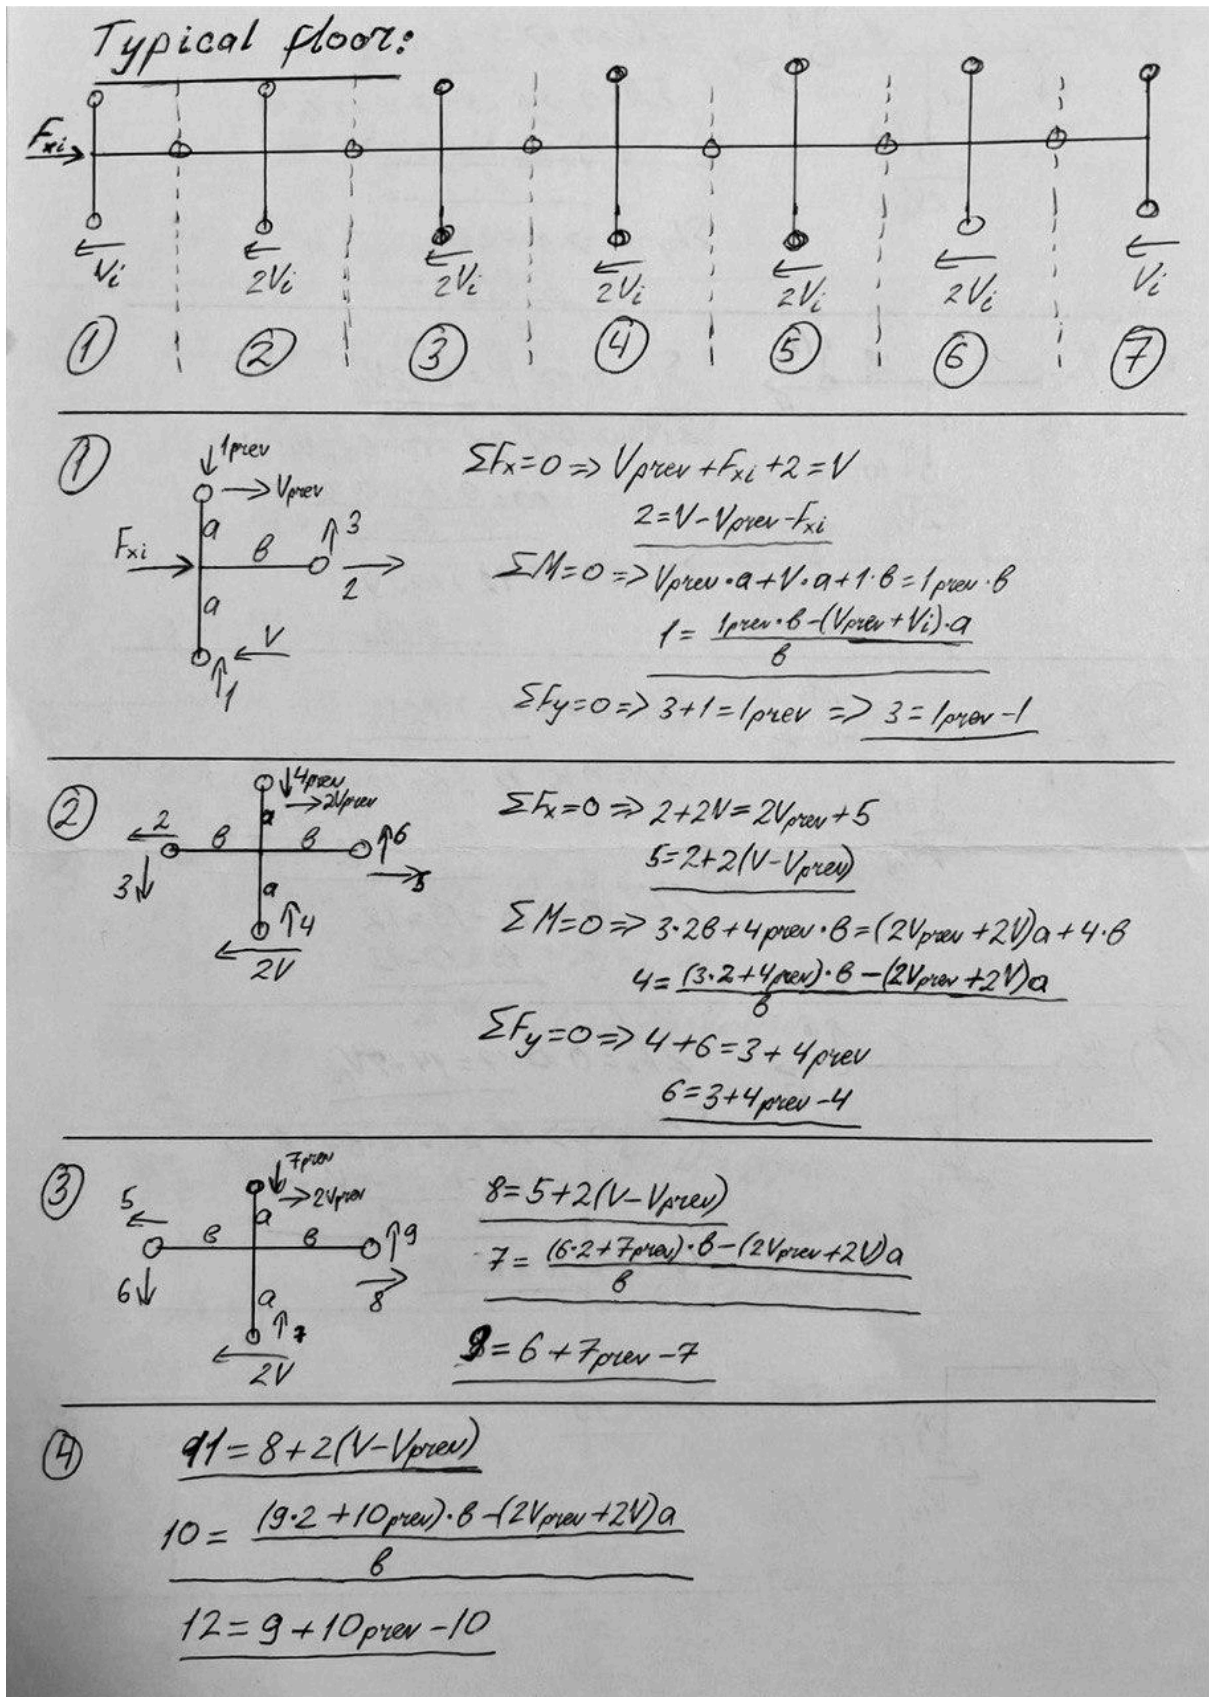 Typical floor:
Fxi
Vi 2Vi 2Vi 2Vi 2Vi 2Vi Vi
① ② ③ ④ ⑤ ⑥ ⑦
①
↓1prev
→Vprev
a
Fxi → в ↑3
2 →
a
←V
↑1
ΣFx=0=>Vprev+Fxi+2=V
2=V-Vprev-Fxi
ΣM=0=>Vprev•a+V•a+1·в=1prev·в
1= (1prev•в-(Vprev+Vi)•a)/в
ΣFy=0=>3+1=1prev => 3=1prev-1
②
↓4prev
→2Vprev
a
2 ← в в ↑6
3↓ →5
a
↑4
←2V
ΣFx=0=>2+2V=2Vprev+5
5=2+2(V-Vprev)
ΣM=0=>3·2в+4prev·в=(2Vprev+2V)a+4·в
4=((3·2+4prev)·в-(2Vprev+2V)a)/в
ΣFy=0=>4+6=3+4prev
6=3+4prev-4
③
↓7prev
→2Vprev
a
5 ← в в ↑9
6↓ →8
a
↑7
←2V
8=5+2(V-Vprev)
7=((6·2+7prev)·в-(2Vprev+2V)a)/в
9=6+7prev-7
④
11=8+2(V-Vprev)
10=((9·2+10prev)·в-(2Vprev+2V)a)/в
12=9+10prev-10